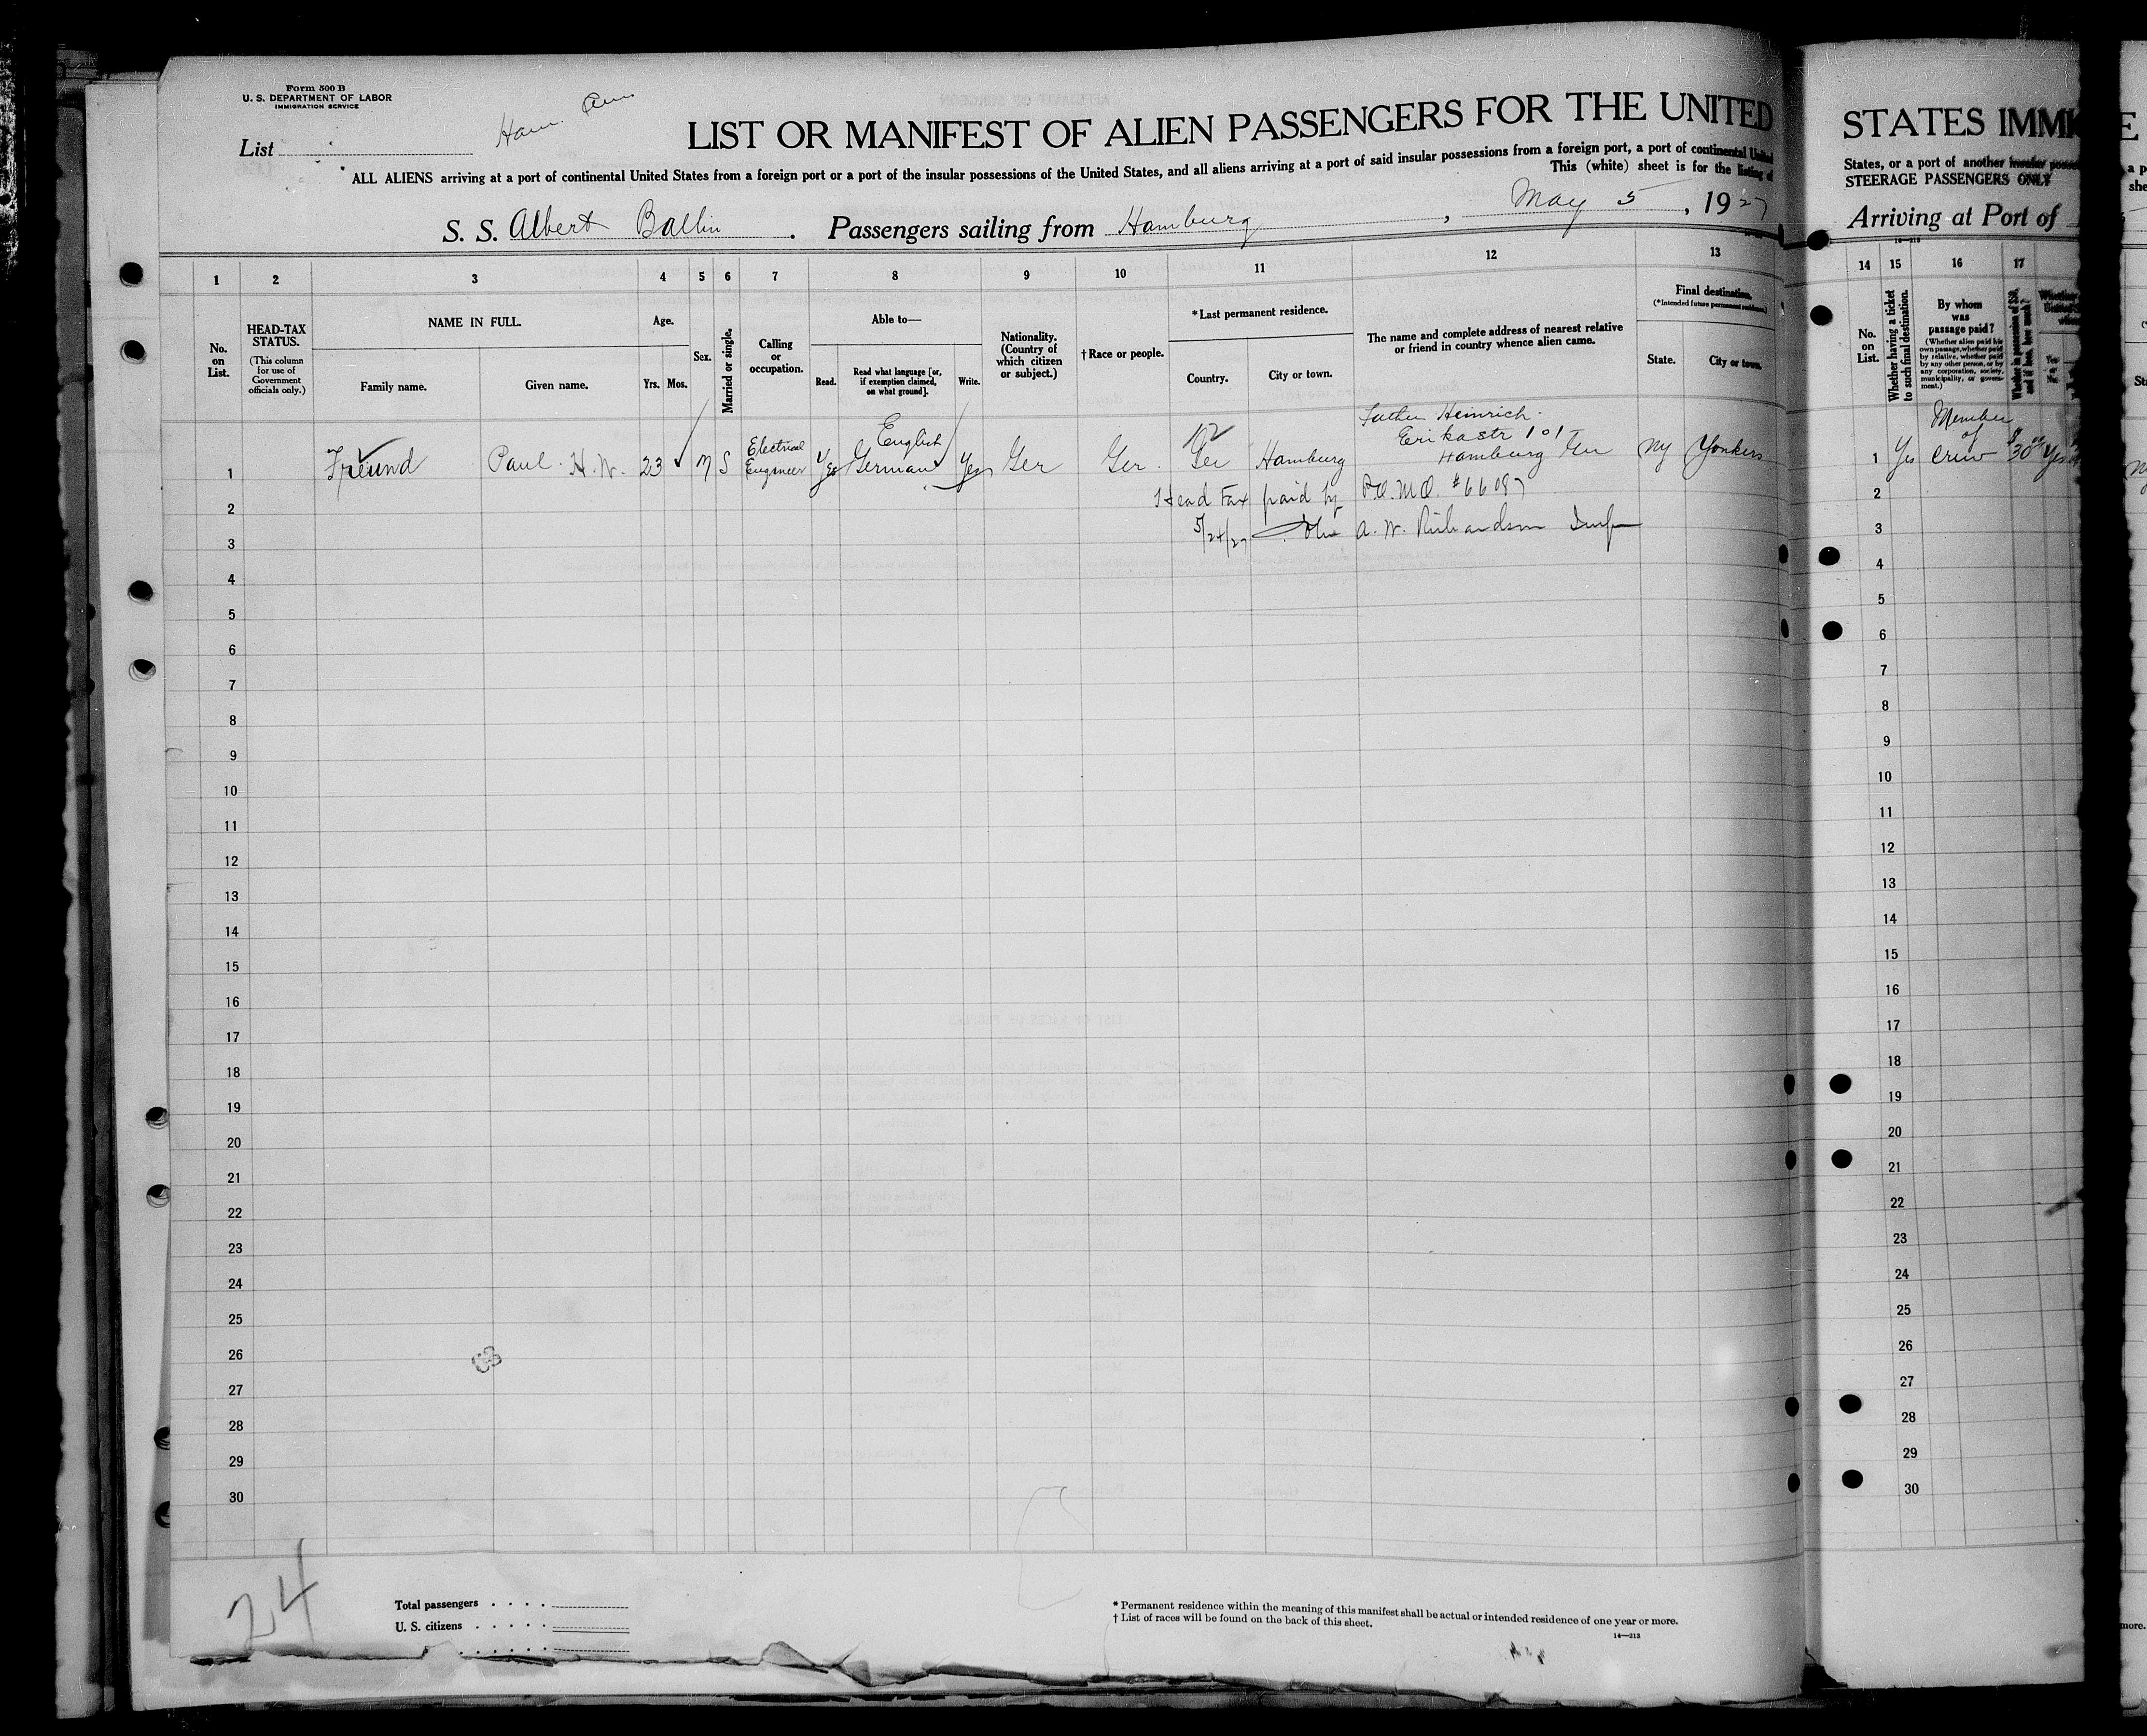 Form 500 B
U. S. DEPARTMENT OF LABOR
IMMIGRATION SERVICE
List
Ham. Am
LIST OR MANIFEST OF ALIEN PASSENGERS FOR THE UNITED
ALL ALIENS arriving at a port of continental United States from a foreign port or a port of the insular possessions of the United States, and all aliens arriving at a port of said insular possessions from a foreign port, a port of continental United
This (white) sheet is for the listing of
S. S. Albert Ballin . Passengers sailing from Hamburg , May 5 , 1927
1 2 3 4 5 6 7 8 9 10 11 12 13
No. on List.
HEAD-TAX STATUS.
(This column for use of Government officials only.)
NAME IN FULL.
Family name. Given name.
Age.
Yrs. Mos.
Sex.
Married or single.
Calling or occupation.
Able to—
Read.
Read what language [or, if exemption claimed, on what ground].
Write.
Nationality. (Country of which citizen or subject.)
† Race or people.
* Last permanent residence.
Country. City or town.
The name and complete address of nearest relative or friend in country whence alien came.
Final destination.
(*Intended future permanent residence.)
State. City or town.
1 Freund Paul H. W. 23 M S Electrical Engineer Yes English German Yes Ger Ger. Ger Hamburg
Father Heinrich.
Erikastr 101
Hamburg Ger
NY Yonkers
2 Head Tax paid by P.O. M.O. #66087
3 5/24/27 A. W. Richardson Insp
4
5
6
7
8
9
10
11
12
13
14
15
16
17
18
19
20
21
22
23
24
25
26
27
28
29
30
24
Total passengers
U. S. citizens
* Permanent residence within the meaning of this manifest shall be actual or intended residence of one year or more.
† List of races will be found on the back of this sheet.
14—213
STATES IMMI
States, or a port of another insular
STEERAGE PASSENGERS ONLY
Arriving at Port of
14 15 16 17
No. on List.
Whether having a ticket to such final destination.
By whom was passage paid?
(Whether alien paid his own passage, whether paid by relative, whether paid by any other person, or by any corporation, society, municipality, or government.)
1 Yes Member of Crew $30 Yes
2
3
4
5
6
7
8
9
10
11
12
13
14
15
16
17
18
19
20
21
22
23
24
25
26
27
28
29
30
more.